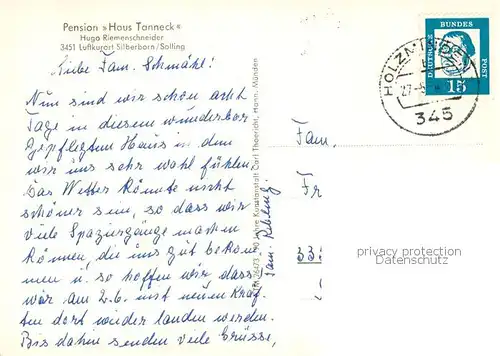 Pension »Haus Tanneck«
Hugo Riemenschneider
3451 Luftkurort Silberborn/Solling
Liebe Fam. Schmähl!
Nun sind wir schon acht
Tage in diesem wunderbar
gepflegten Haus in dem
wir uns sehr wohl fühlen.
Das Wetter könnte nicht
schöner sein, so dass wir
viele Spaziergänge machen
können, die uns gut bekom
men u. so hoffen wir dass
wir am 2.6. mit neuen Kräf
ten dort wieder landen werden.
Bis dahin senden viele Grüsse,
Fam.
Jahre Kunstanstalt Carl Thoericht, Hann. Münden
DEUTSCHE BUNDES POST
15
HOLZMINDEN
345
Fam.
Fr
privacy protection
Datenschutz